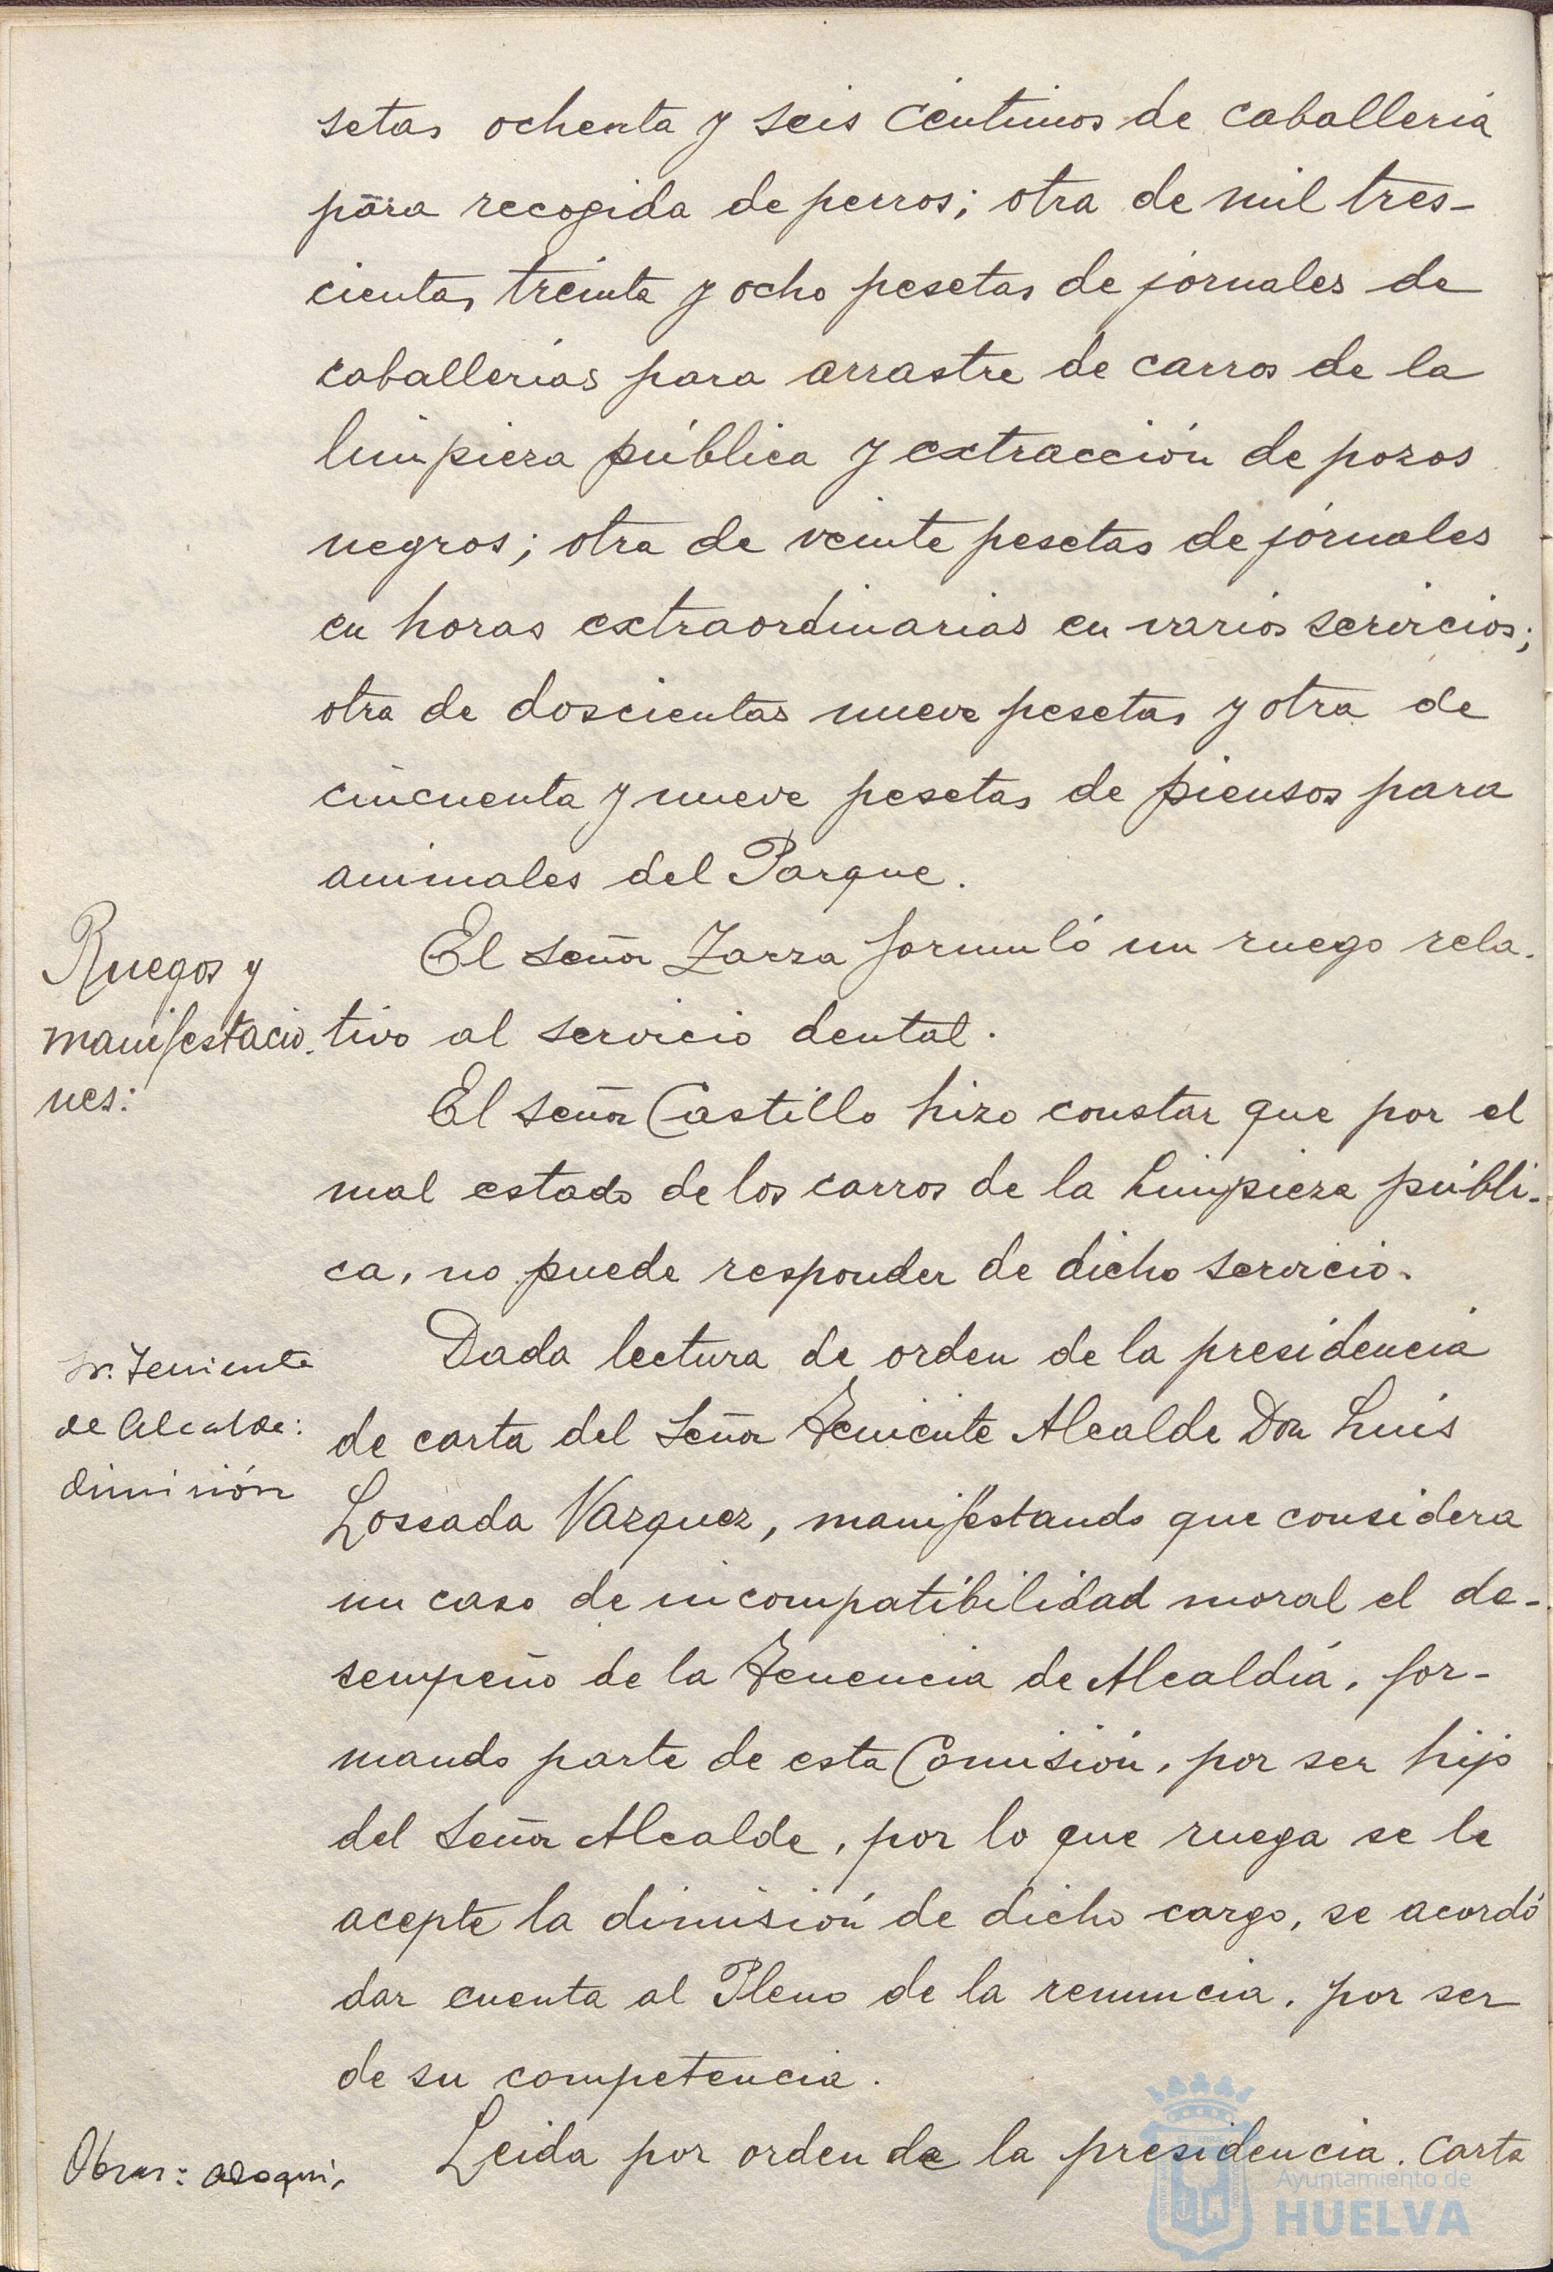 setas ochenta y seis céntimos de caballería
para recogida de perros; otra de mil tres-
cientas treinta y ocho pesetas de jornales de
caballerías para arrastre de carros de la
limpieza pública y extracción de pozos
negros; otra de veinte pesetas de jornales
en horas extraordinarias en varios servicios;
otra de doscientas nueve pesetas y otra de
cincuenta y nueve pesetas de piensos para
animales del Parque.
Ruegos y
manifestacio-
nes:
El señor Zarza formuló un ruego rela-
tivo al servicio dental.
El señor Castillo hizo constar que por el
mal estado de los carros de la Limpieza públi-
ca, no puede responder de dicho servicio.
Sr. Teniente
de Alcalde:
dimisión
Dada lectura de orden de la presidencia
de carta del Señor Teniente Alcalde Don Luis
Lossada Vazquez, manifestando que considera
un caso de incompatibilidad moral el de-
sempeño de la Tenencia de Alcaldía, for-
mando parte de esta Comisión, por ser hijo
del Señor Alcalde, por lo que ruega se le
acepte la dimisión de dicho cargo, se acordó
dar cuenta al Pleno de la renuncia, por ser
de su competencia.
Obras: adoqui-
Leida por orden de la presidencia. Carta
Ayuntamiento de
HUELVA